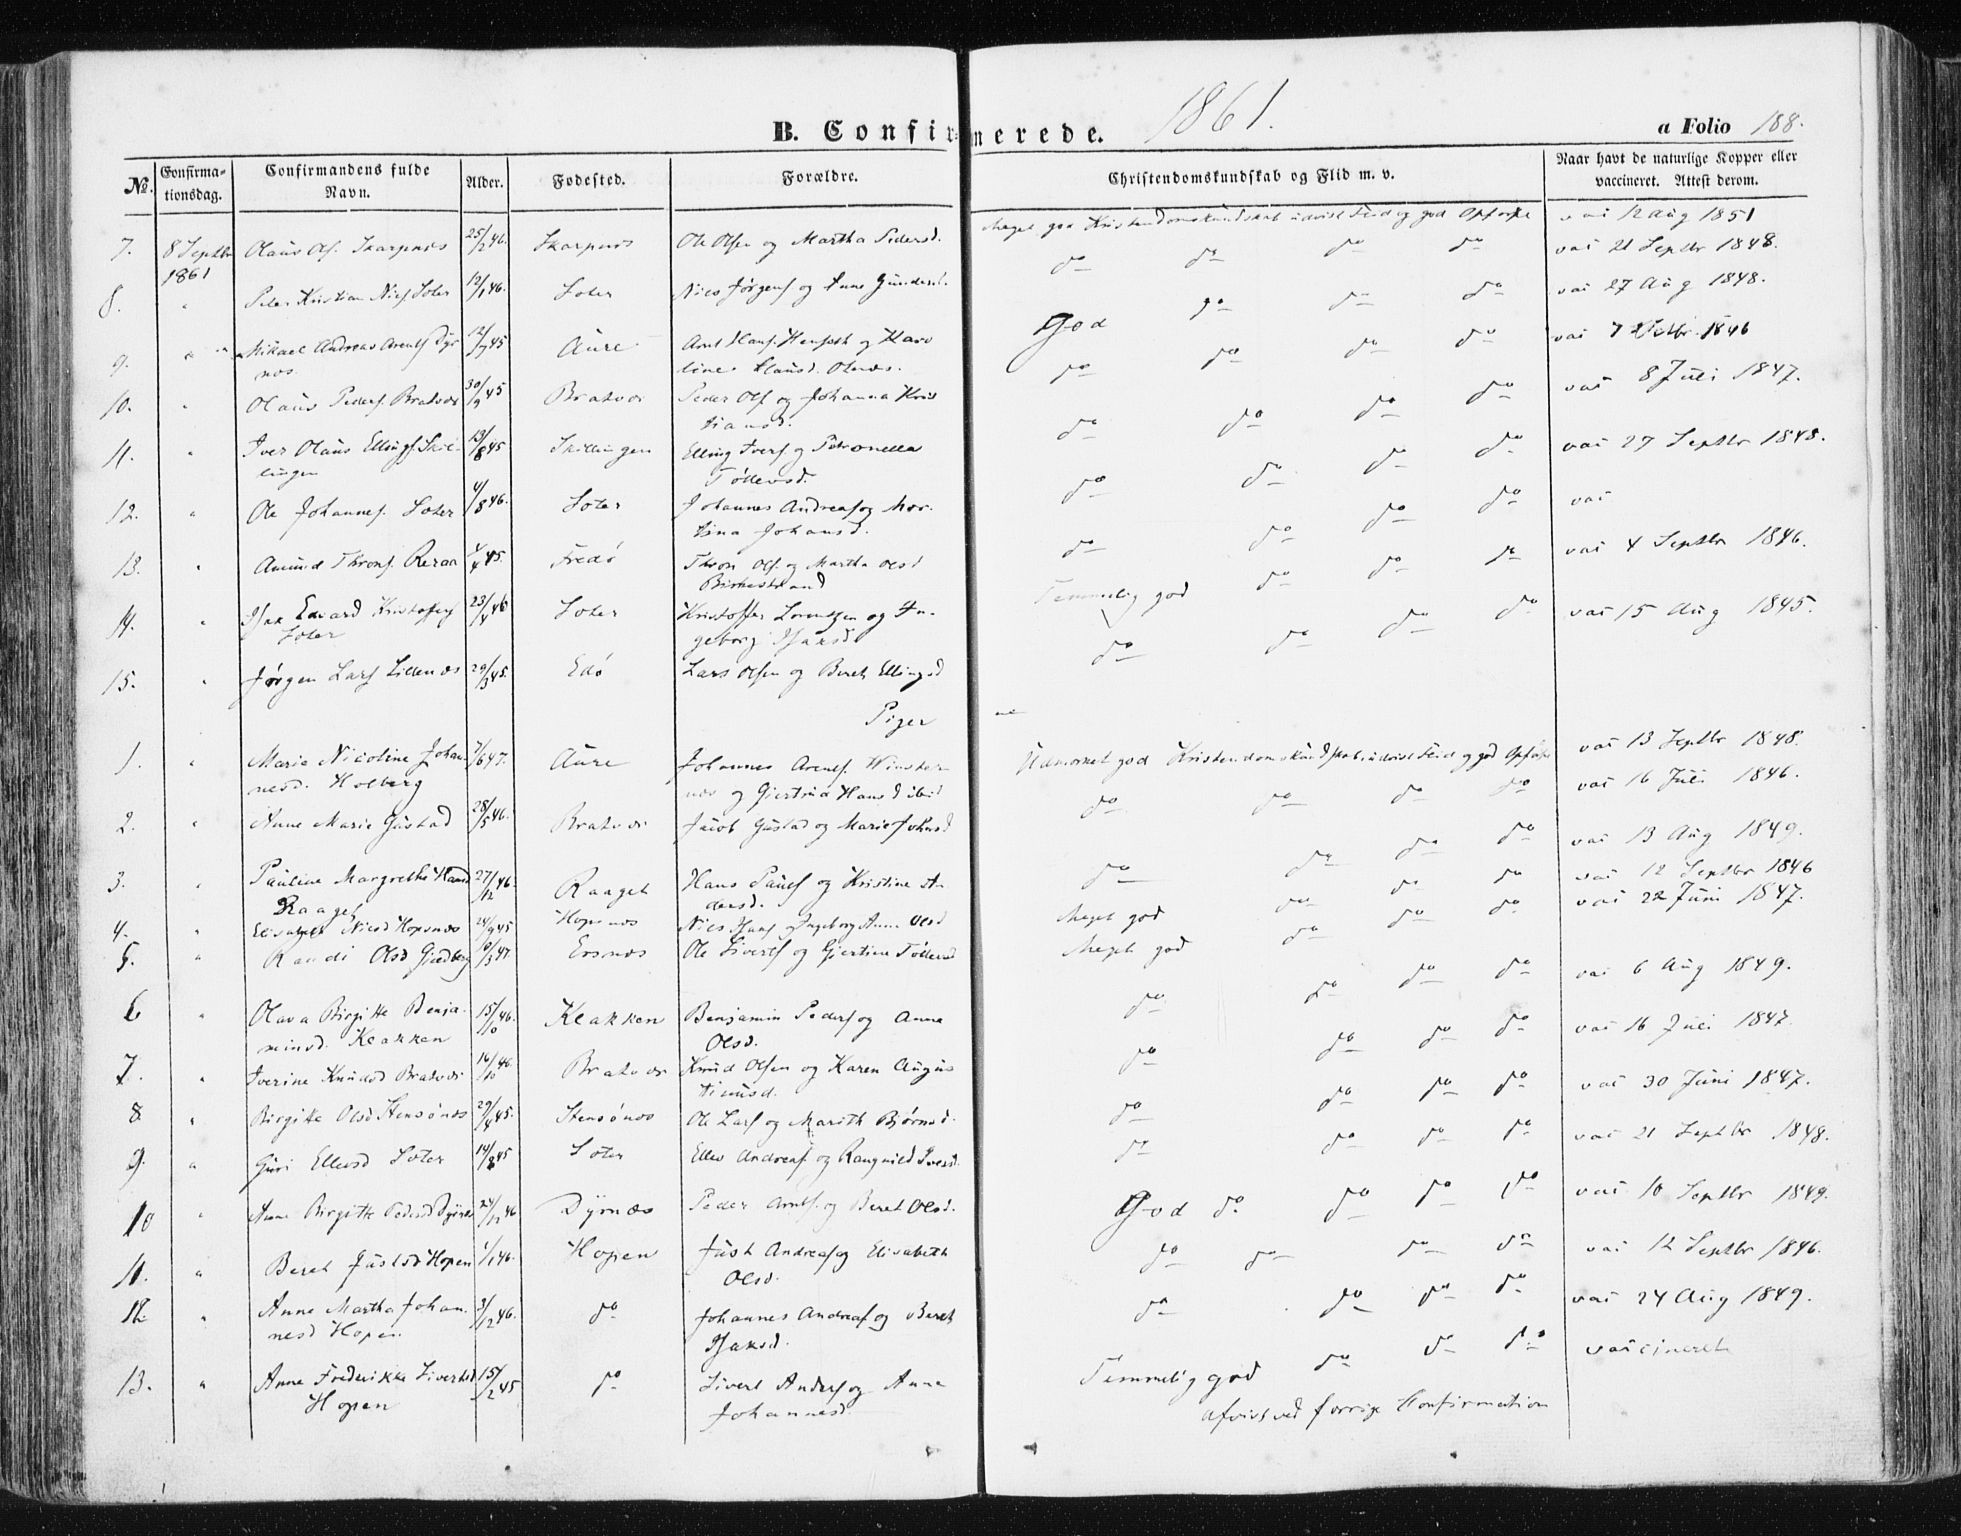 B. Confirmerede. 1861.
a Folio 188.
№. Confirmationsdag. Confirmandens fulde Navn. Alder. Fødested. Forældre. Christendomskundskab og Flid m. v. Naar havt de naturlige Kopper eller vaccineret. Attest derom.
7. 8 Septbr 1861 Olaus Ols. Skarpnæs 25/2 46. Skarpnæs Ole Olsen og Martha Pedersd. Meget god Kristendomskundskab udvist Flid og god Opførsel vac 12 Aug 1851
8. " Peter Kristian Niels. Soter 12/1 46. Soter Niels Jørgens. og Anne Gundersd. do do do do vac 21 Septbr 1848.
9. " Mikael Andreas Arents. Dyrnæs 12/7 45 Aure Arnt Hans. og Karoline Klausd. God do do do vac 27 Aug 1848.
10. " Olaus Peders. Bratvær 30/9 45 Bratvær Peder Ols. og Johanna Kristiansd. do do do do vac 7 Octbr 1846
11. " Iver Olaus Ellings. Skillingen 13/8 45 Skillingen Elling Ivers. og Petronella Tøllevsd. do do do do vac 8 Juli 1847.
12. " Ole Johannes. Soter 4/8 46. Soter Johannes Andreas. og Martina Johansd. do do do do vac 27 Septbr 1848.
13. " Amund Throns. Reraa 4/4 45. Fredø Thron Ols. og Martha Olsd Birkestrand do do do do vac
14. " Isak Edvard Kristoffers Soter 23/4 46 Soter Kristoffer Lorentzen og Ingeborg Isaksd. Temmelig god do do do vac 4 Septbr 1846.
15. " Jørgen Lars. Lillenæs 29/3 45. Edø Lars Olsen og Beret Ellingsd do do do do vac 15 Aug 1845.
Piger
1. " Marie Nicoline Johannesd. Holberg 7/6 47. Aure Johannes Arents. og Gjertrud Hansd ibid Udmærket god Kristendomskundskab, udvist Flid og god Opførsel vac 13 Septbr 1848.
2. " Anne Marie Gustad 28/5 46. Bratvær Jacob Gustad og Marie Johnsd do do do do vac 16 Juli 1846.
3. " Pauline Margrethe Hansd Raaget 27/12 46. Raaget Hans Pauls. og Kristine Andersd. do do do do vac 13 Aug 1849.
4. " Elisabet Nielsd Hopsnæs 24/9 45 Hopsnæs Niels Hans. og Ingeborg Anna Olsd Meget god do do do vac 12 Septbr 1846
5. " Randi Olsd Gjedberg 9/3 47 Ersnæs Ole Siverts. og Gjertine Tøllevsd Meget god do do do vac 22 Juni 1847.
6 " Olava Birgitte Benjaminsd. Klakken 15/10 46. Klakken Benjamin Peders. og Anne Olsd. do do do do vac 6 Aug 1849.
7. " Iverine Knudsd Bratvær 14/10 46. Bratvær Knud Olsen og Karen Augustinusd. do do do do vac 16 Juli 1847
8 " Birgitte Olsd Stensønæs 29/4 45. Stensønæs Ole Lars. og Marith Bjørnsd. do do do do vac 30 Juni 1847.
9. " Guri Ellevsd Soter 14/8 45 Soter Ellev Andreas. og Rangnild Iversd. do do do do vac 21 Septbr 1848.
10 " Anne Birgitte Pedersd Dyrnæs 24/12 46 Dyrnæs Peder Arnts. og Beret Olsd. God do do do do vac 10 Septbr 1849.
11. " Beret Justsd Hopen 1/1 46. Hopen Just Andreas. og Elisabeth Olsd. do do do do vac 12 Septbr 1846.
12. " Anne Martha Johannesd Hopen 3/2 46. do Johannes Andreas. og Beret Isaksd. do do do do vac 24 Aug 1849.
13. " Anne Frederikke Sivertsd Hopen 15/2 45 do Sivert Anders. og Anne Johannesd. Temmelig god do do do vaccineret
afvist ved forrige Confirmation